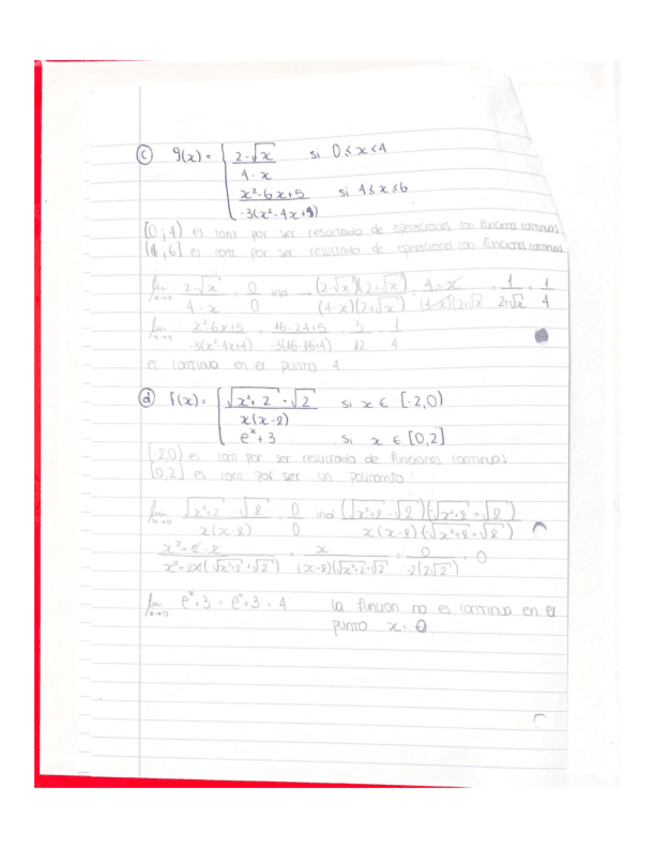 c) g(x) = { (2-√x)/(4-x) si 0 ≤ x < 4
(x²-6x+5)/(-3(x²-4x+4)) si 4 ≤ x ≤ 6
[0;4) es cont por ser resultado de operaciones con funciones continuas
(4,6] es cont por ser resultado de operaciones con funciones continuas
lim x→4 (2-√x)/(4-x) = 0/0 ind → (2-√x)(2+√x)/((4-x)(2+√x)) = (4-x)/((4-x)(2+√x)) = 1/(2+√x) = 1/4
lim x→4 (x²-6x+5)/(-3(x²-4x+4)) = (16-24+5)/(-3(16-16+4)) = 3/12 = 1/4
es continua en el punto 4
d) f(x) = { (√(x²+2) - √2)/(x(x-2)) si x ∈ [-2,0)
eˣ+3 si x ∈ [0,2]
[-2,0) es cont por ser resultado de funciones continuas
[0,2] es cont por ser un polinomio
lim x→0 (√(x²+2) - √2)/(x(x-2)) = 0/0 ind (√(x²+2) - √2)(√(x²+2) + √2)/(x(x-2)(√(x²+2) + √2))
(x²+2-2)/(x²-2x(√(x²+2) + √2)) = x/((x-2)(√(x²+2) + √2)) = 0/(-2(2√2)) = 0
lim x→0 eˣ+3 = e⁰+3 = 4 la funcion no es continua en el
punto x = 0